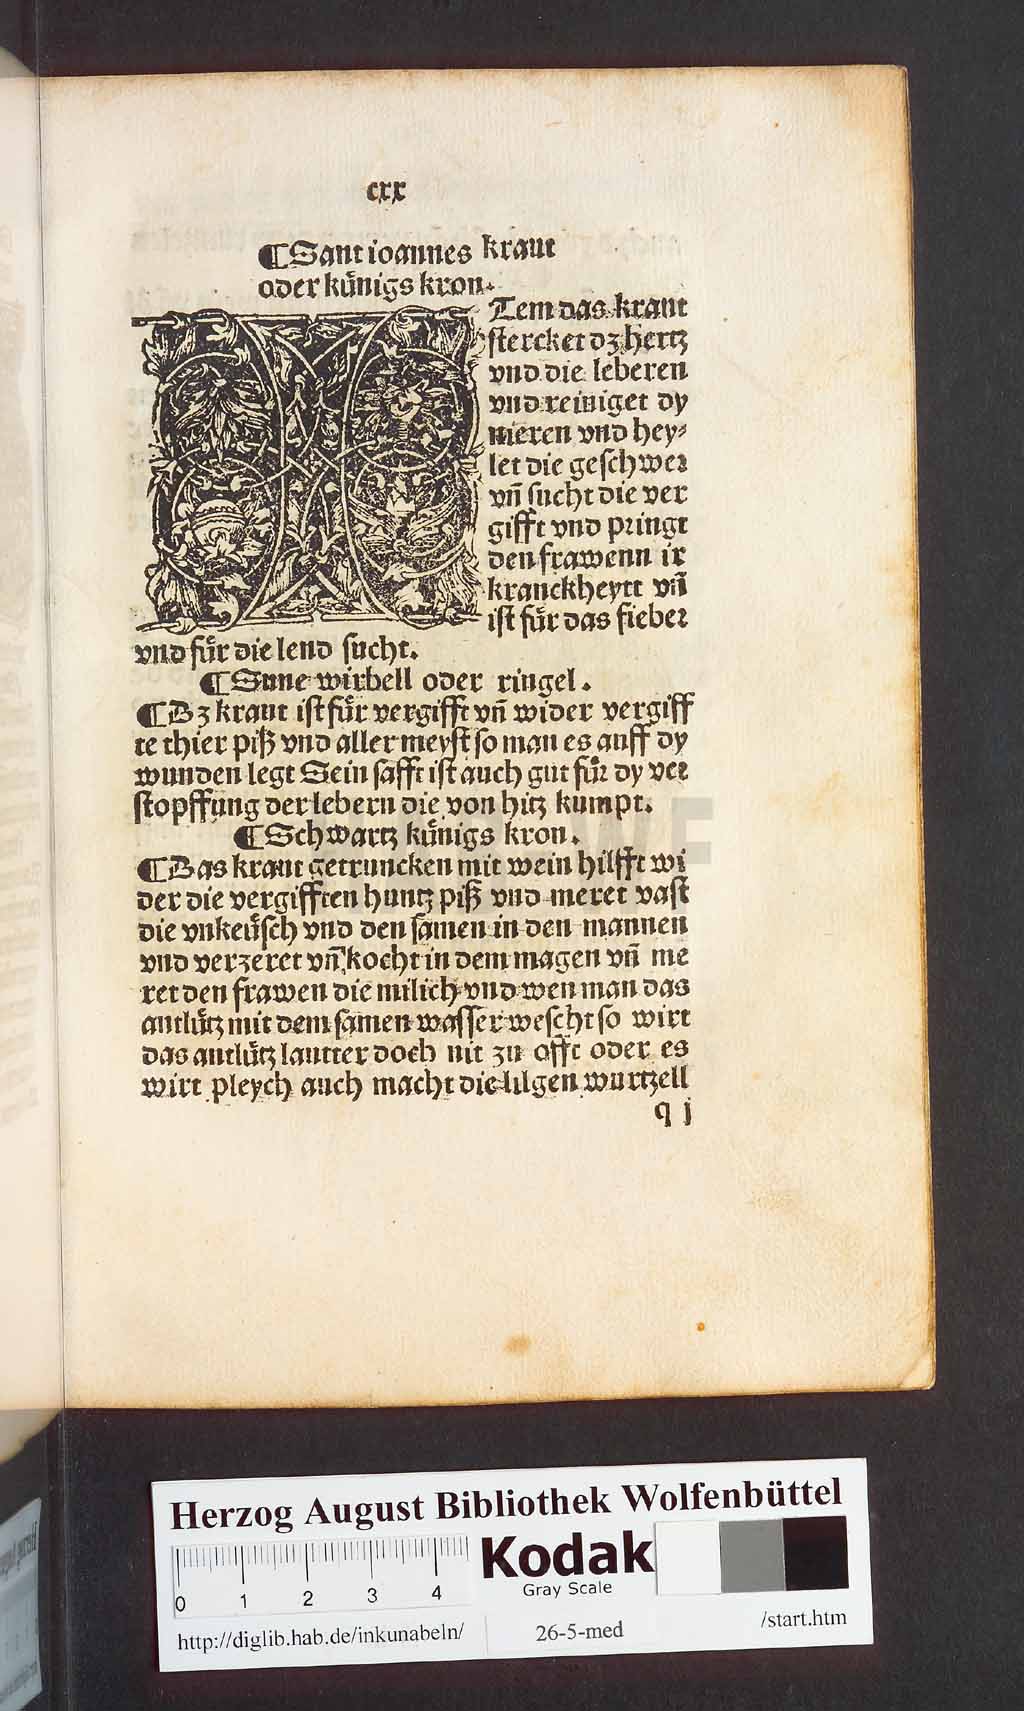 cxx
¶Sant ioannes kraut
oder kůnigs kron.
Tem das kraut
stercket dz hertz
vnd die leberen
vnd reiniget dy
nieren vnd hey⸗
let die geschwer
vn̄ sucht die ver
gifft vnd pringt
den frawenn ir
kranckheytt vn̄
ist fůr das fieber
vnd fůr die lend sucht.
¶Sune wirbell oder ringel.
¶Dz kraut ist fůr vergifft vn̄ wider vergiff
te thier piß vnd aller meyst so man es auff dy
wunden legt Sein safft ist auch gut fůr dy ver
stopffung der lebern die von hitz kumpt.
¶Schwartz kůnigs kron.
¶Das kraut getruncken mit wein hilfft wi
der die vergifften huntz piß vnd meret vast
die vnkeůsch vnd den samen in den mannen
vnd verzeret vn̄ kocht in dem magen vn̄ me
ret den frawen die milich vnd wen man das
antlůtz mit dem samen wasser wescht so wirt
das antlůtz lautter doch nit zu offt oder es
wirt pleych auch macht die lilgen wurtzell
q j
Herzog August Bibliothek Wolfenbüttel
Kodak
Gray Scale
0 1 2 3 4
http://diglib.hab.de/inkunabeln/ 26-5-med /start.htm